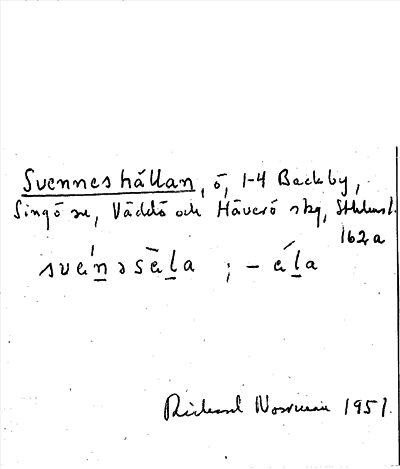 Svenneshällan, ö, 1-4 Backby,
Singö sn, Väddö och Häverö skg, Sthlms l.
162a
svenəsäla ; - äla
Rickard Norman 1951.